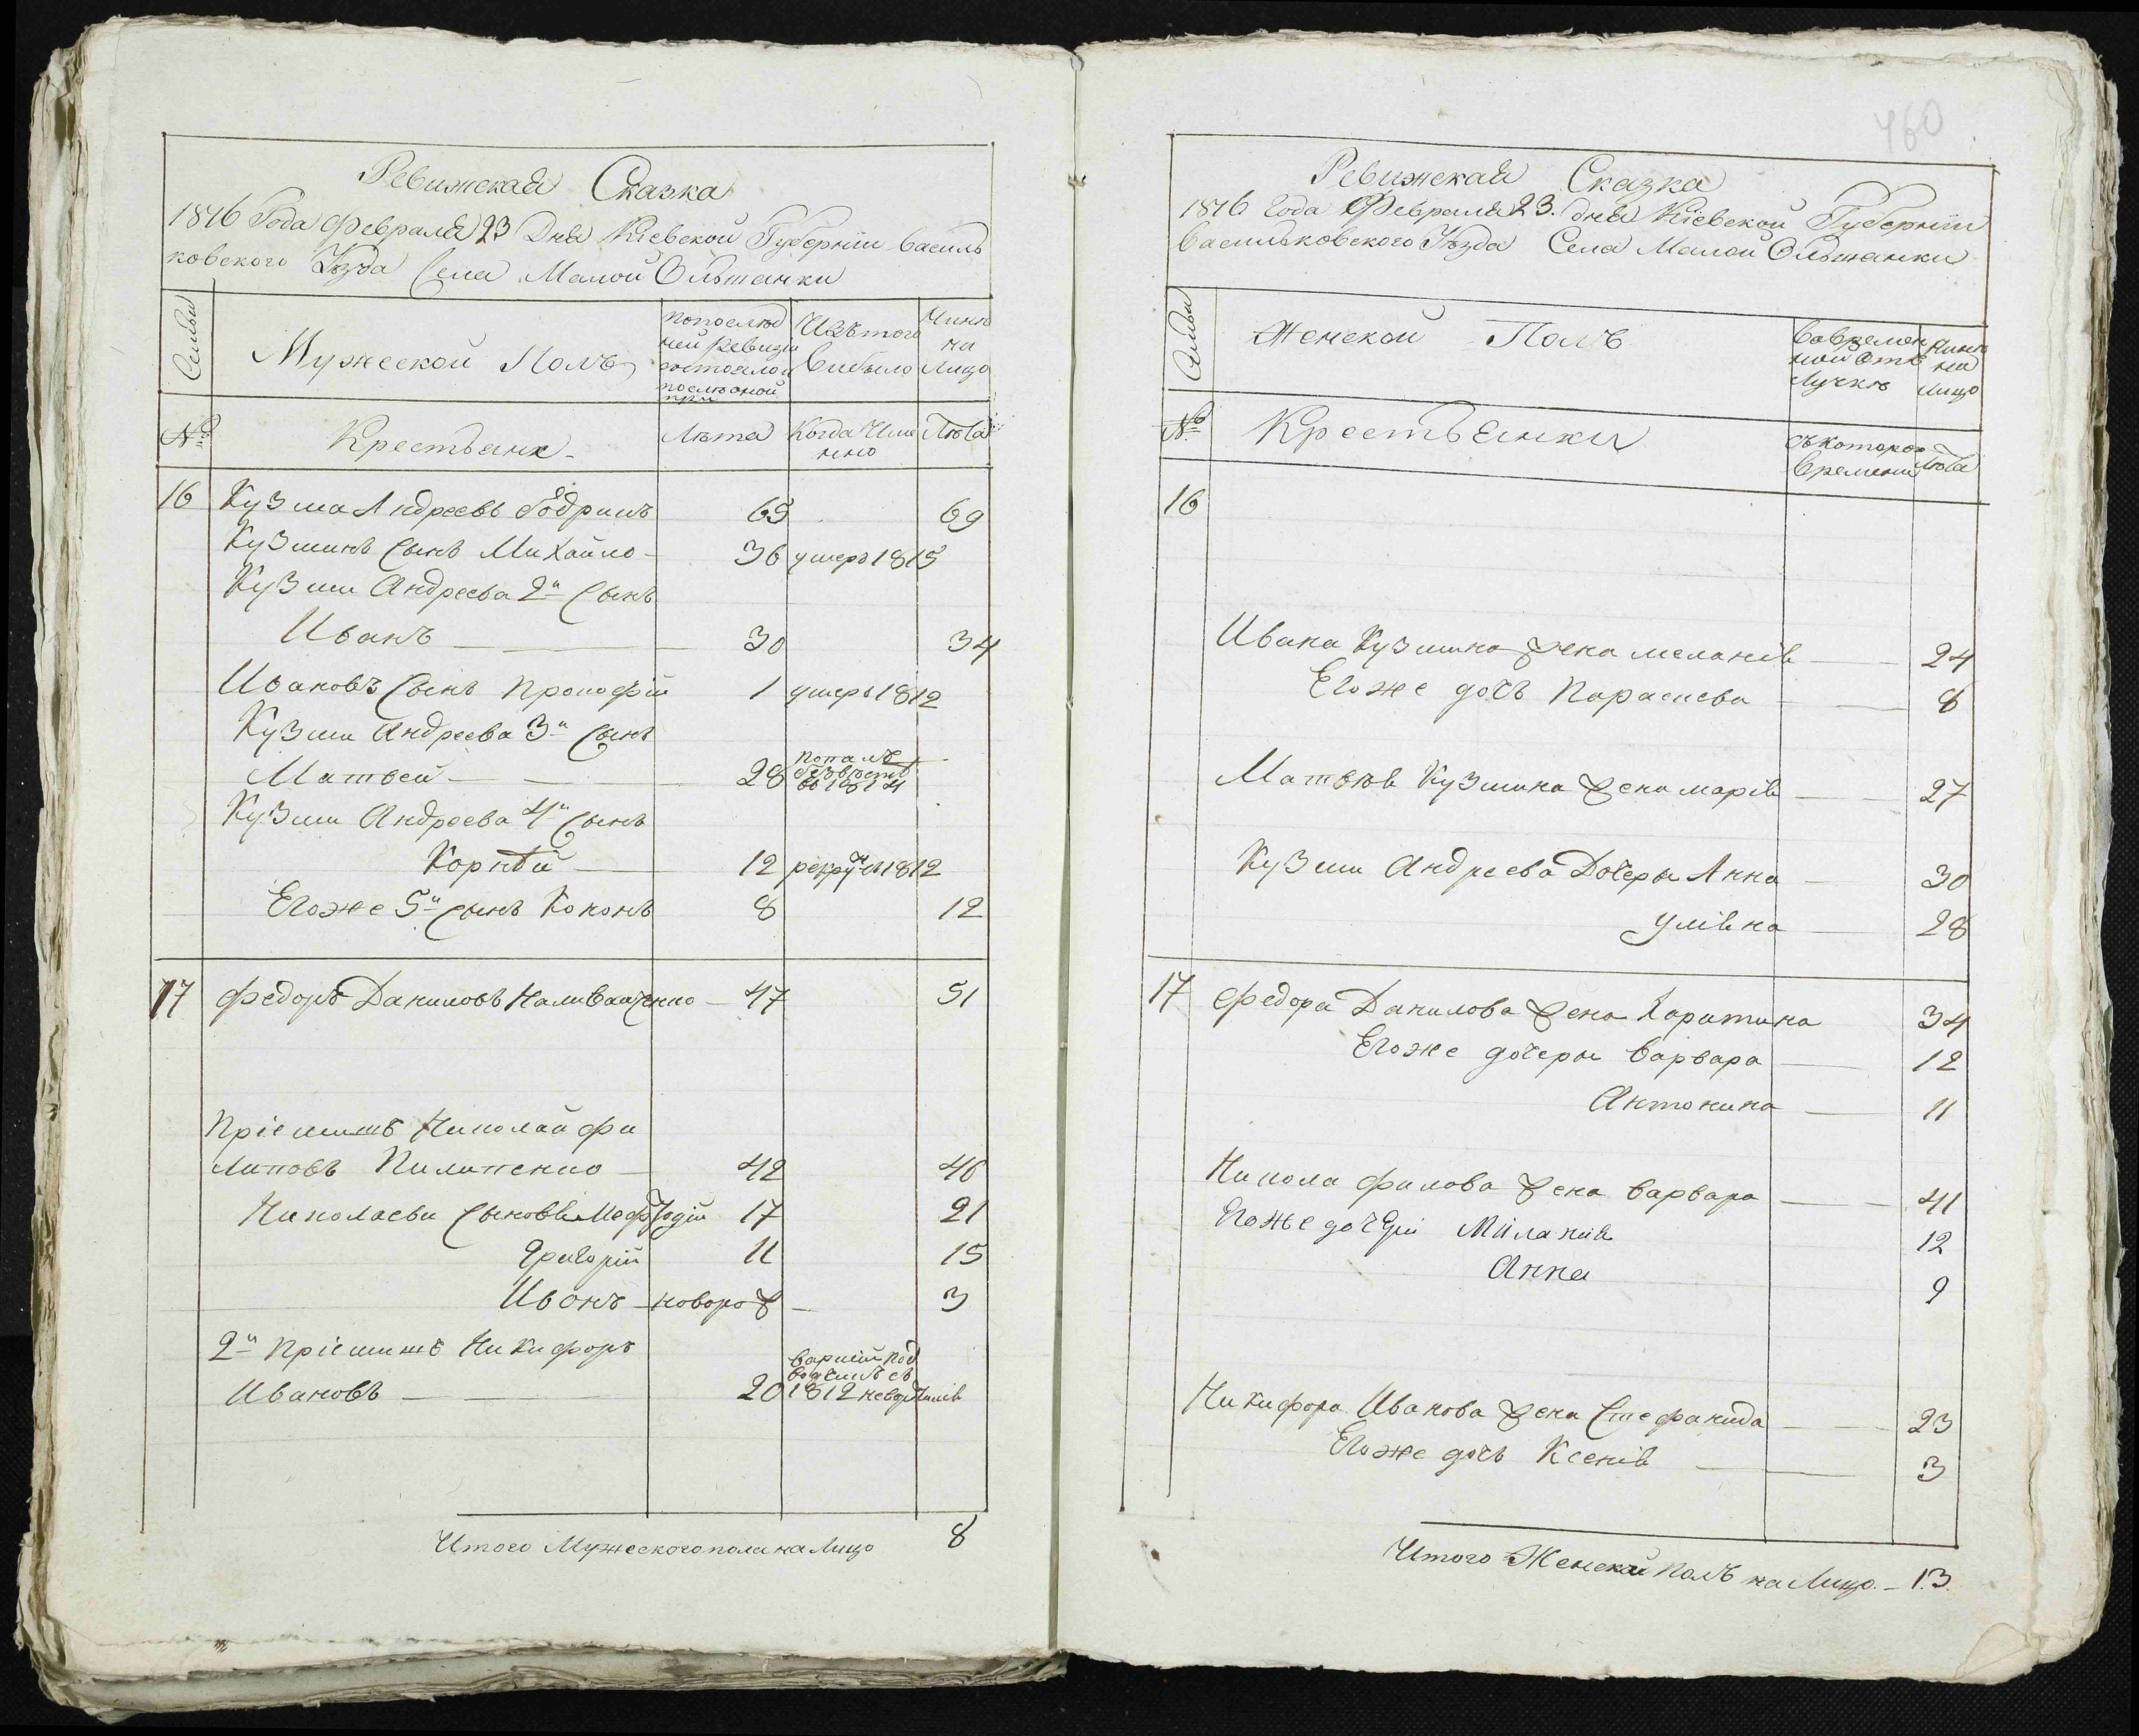 Ревижская Сказка
1816 Года Февраля 23 Дня Кіевской Губерніи Василь
ковского Уѣзда Села Малой Ольшанки
Семьи
Мужеской Полъ
По послѣд
ней Ревизіи
состояло и
послѣ оной
при
Изъ того
Выбыло
Нинѣ
на
Лицо
№
Крестьяне
Лѣта
Когда Име
нно
Лѣта
16 Кузма Андреевъ 65 69
Кузминъ Сынъ Михайло 36 умеръ 1815
Кузми Андреева 2й Сынъ
Иванъ 30 34
Ивановъ Сынъ Прокофій 1 умеръ 1812
Кузми Андреева 3й Сынъ
Матвей 28 безвѣсти въ 1814
Кузми Андреева 4й Сынъ
Корнѣй 12 рекрутъ 1812
Егоже 5й Сынъ Кононъ 8 12
17 Федоръ Даниловъ Наливайченко 47 51
Пріемишъ Николай Фи
липовъ Пилипенко 42 46
Николаеви Сыновья Мефодій 17 21
Григорій 11 15
Иванъ новорож 3
2й Пріемишъ Никифоръ
Ивановъ 20 1812
Итого Мужеского пола на Лицо 8
460
Ревижская Сказка
1816 Года Февраля 23. дня Кіевской Губерніи
Васильковского Уѣзда Села Малой Ольшанки
Семьи
Женской Полъ
Во времен
ной отъ
лучкѣ
Нинѣ
на
Лицо
№
Крестьянки
Съ которого
Времени
Лѣта
16
Ивана Кузмина жена Меланія 24
Егоже дочь Параскева 8
Матвѣя Кузмина жена Марія 27
Кузми Андреева Дочеры Анна 30
Уліяна 28
17 Федора Данилова жена Харитина 34
Егоже дочеры Варвара 12
Антонина 11
Никола Филова жена Варвара 41
Егоже дочери Міланія 12
Анна 9
Никифора Иванова жена Стефанида 23
Егоже дочь Ксенія 3
Итого Женской Полъ на Лицо - 13.